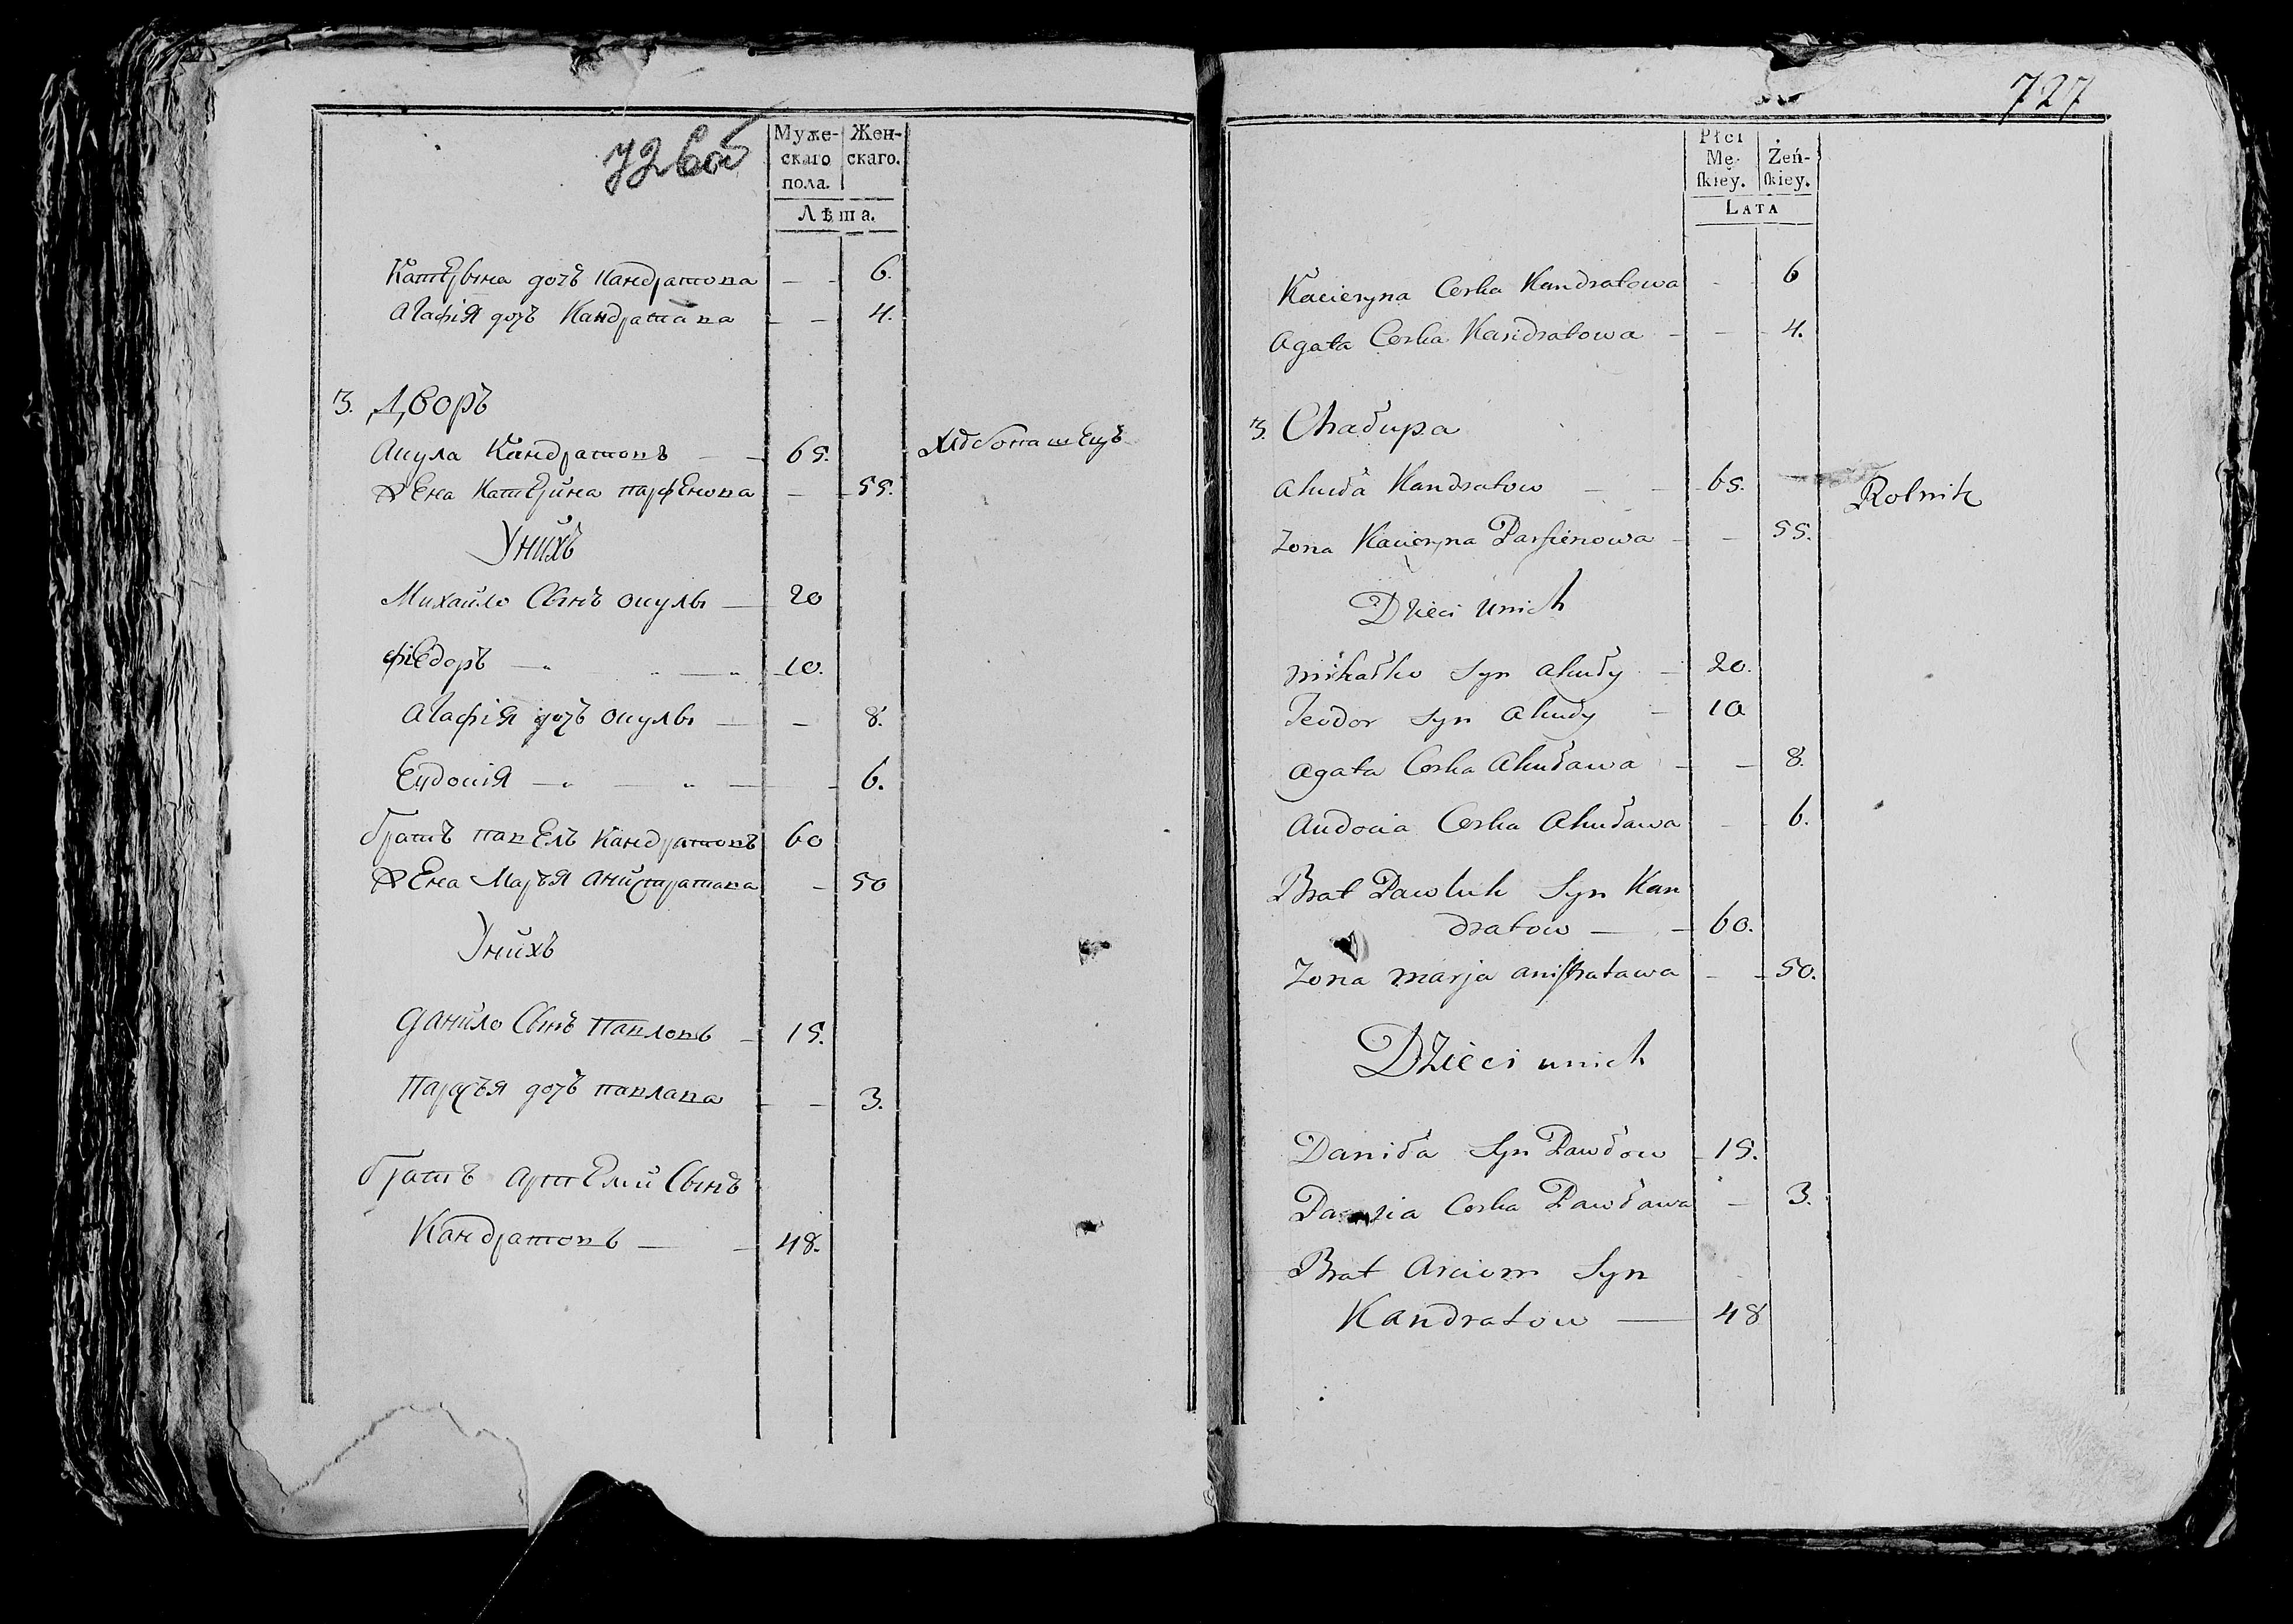 726об
Муже- Жен-
скаго скаго.
пола.
Лѣта.
Катерына дочъ Кандратова — — 6.
Агафія дочъ Кандратава — — 4.
3. Дворъ
Акула Кандратовъ — — 65. Хлѣбопашецъ
Жена Катерина Парфенова — 55.
У нихъ
Михайло Сынъ Окулы — 20
Фіедоръ — „ „ — „ 10.
Агафія дочъ Окулы — — 8.
Евдокія — „ — „ — 6.
братъ Павелъ Кандратовъ 60
Жена Марья Анистратава — 50
У нихъ
Данило Сынъ Павловъ — 15.
Парасья дочъ Павлава — — 3.
братъ Артемій Сынъ
Кандратовъ — — 48.
727
Płci
Mę- Żeń-
ſkiey. ſkiey.
LATA
Kacieryna Corka Kandratowa - 6
Agata Corka Kandratowa — — 4.
3. Chałupa
Akuła Kandratow — — 65. Rolnik
Zona Kacieryna Parfienowa — — 55.
Dzieci unich
Mihałko Syn Akuły — 20.
Teodor Syn Akuły — 10
Agata Corka Akuława — — 8.
Audocia Corka Akuława — 6.
Brat Pawluk Syn Kan
dratow — — 60.
Zona Marja Aniſtratawa — — 50.
Dzieci unich
Daniła Syn Pawłow — 15.
Corka Pawława — 3.
Brat Arciom Syn
Kandratow — 48